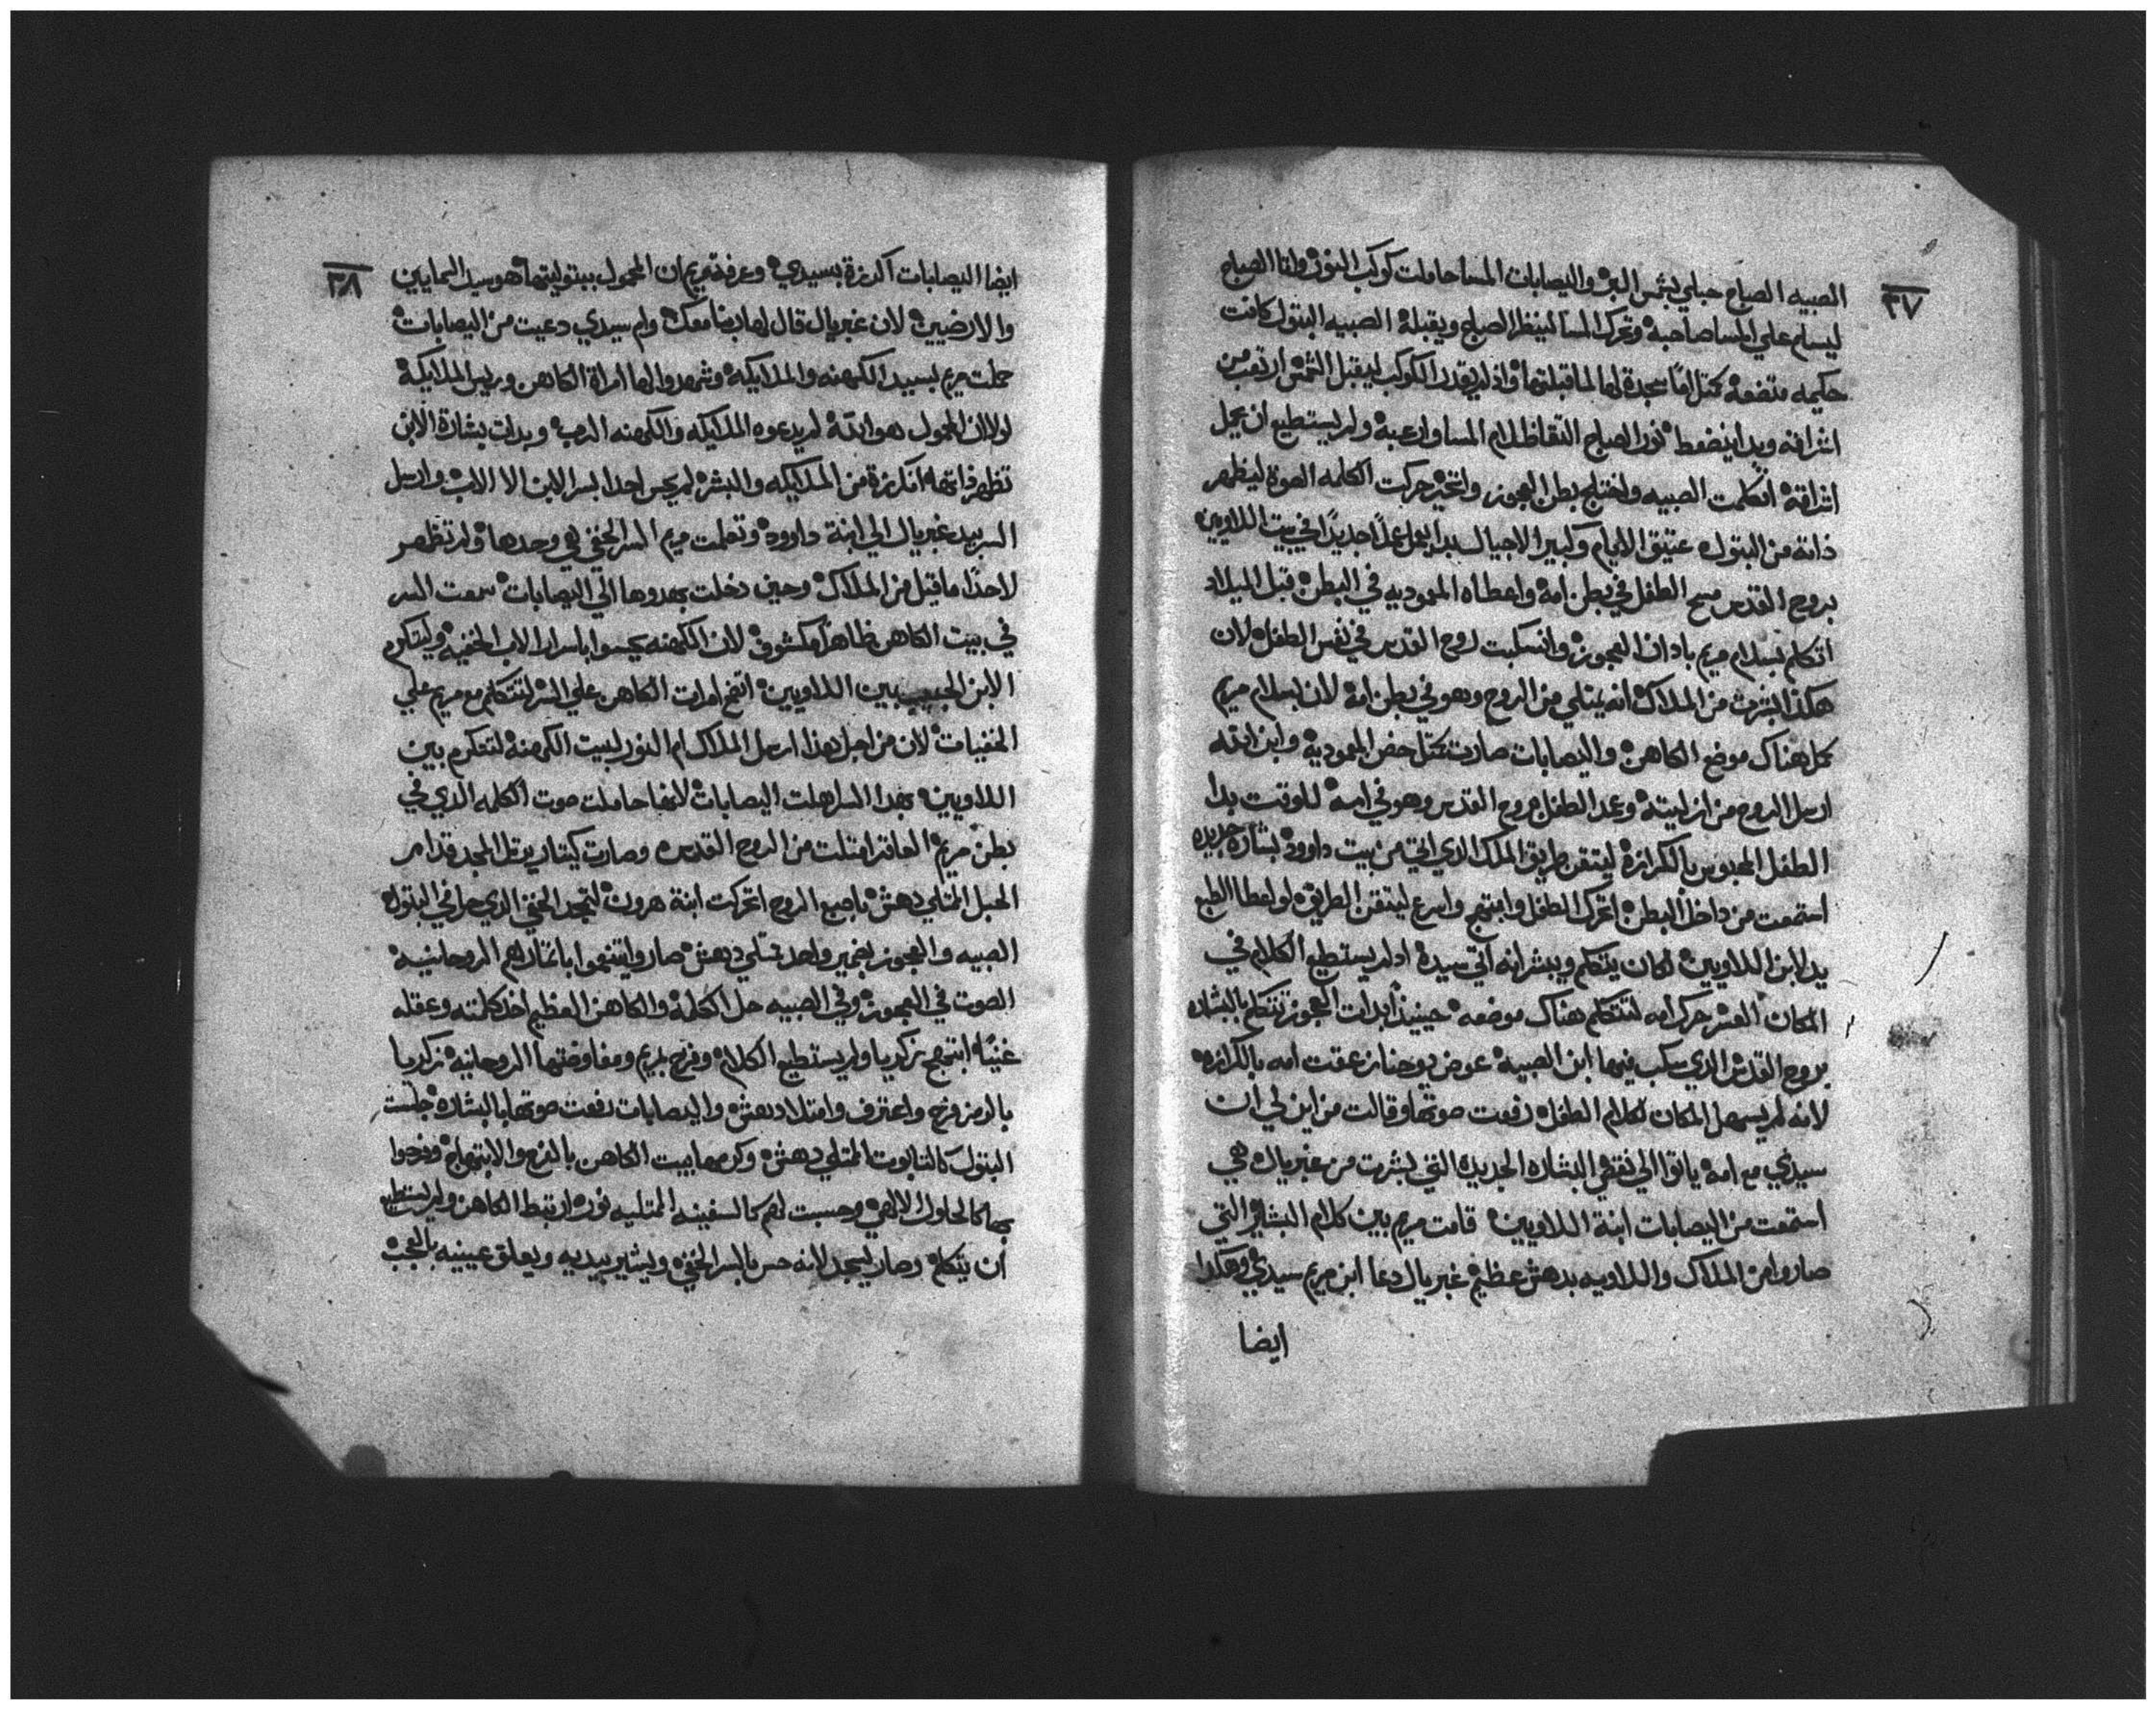 ٣٧
الصبيه الصباح حبلي بشمس البر واليصابات المسا حاملت كوكب النور واتا الصباح
ليسلم علي المسا صاحبه وتحرك المسا لينظر الصباح ويقبله الصبيه البتول كانت
حكيمه متضعه سجدة لها لما قبلتها واذ لم يقدر الكوكب ليقبل الشمس ارتعب من
اشراقه وبدا ينضغط نور الصباح التقا ظلام المسا وارعبه ولم يستطيع ان يحمل
اشراقه اتكلمت الصبيه واختلج بطن العجوز حركت الكلمه الصوت ليظهر
ذاته من البتول عتيق الايام وكبير الاجيال بدا يعمل عملاً جديداً في بيت اللاويين
بروح القدس مسح الطفل في بطن امه واعطاه المعموديه في البطن قبل الميلاد
اتكلم بسلام مريم بادان العجوز وانسكبت روح القدس في نفس الطفل لان
هكذا ابشرت من الملاك انه يمتلي من الروح وهو في بطن امه لان بسلام مريم
كمل هناك موضع الكاهن واليصابات صارت حضن المعموديه وابن الله
ارسل الروح من ازليته وعمد الطفل بروح القدس وهو في امه للوقت بدا
الطفل المحبوس بالكرازه ليتقن طريق الملك الذي اتي من بيت داوود بشاره جديده
استمعت من داخل البطن اتحرك الطفل وابتهج واسرع ليتقن الطريق لو اعطا الطبع
يد لابن اللاويين لكان يتكلم ويبشر انه اتي سيده اد لم يستطيع الكلام في
المكان العسر حرك امه لتتكلم هناك موضعه حينيذاً بدات العجوز تتكلم بالبشاره
بروح القدس الذي سكب فيها ابن الصبيه عوض يوحنا زعقت امه بالكرازه
لانه لم يسهل المكان لكلام الطفل رفعت صوتها وقالت من اين لي ان
سيدي مع امه ياتوا الي نقي البشاره الجديده التي بشرت من غبريال هي
استمعت من اليصابات ابنة اللاويين قامت مريم بين كلام البشاير التي
صاروا من الملاك واللاويه بدهش عظيم غبريال دعا ابن مريم سيدي وهكدا
ايضا
٣٨
ايضا اليصابات اكرزة بسيدي وعرفة مريم ان المحمول ببتوليتها هو سيد السمايين
والارضيين لان غبريال قال لها ربنا معك وام سيدي دعيت من اليصابات
حملت مريم لسيد الكهنه والملايكه وشهدوا لها امراة الكاهن وريس الملايكه
لولا ان المحمول هو الله لم يدعوه الملايكه والكهنه الرب وبدات بشارة الابن
تظهر ذاتها اكرزة من الملايكه والبشر لم يحس احدا بسر الابن الا الاب وارسل
السر بيد غبريال الي ابنة داوود وتعلمت مريم السر الخفي هي وحدها ولم تظهر
لاحداً ما قيل من الملاك وحين دخلت بهدوها الي اليصابات سمعت السر
في بيت الكاهن ظاهراً مكشوف لان الكهنه يحسوا باسرار الاب الخفيه وليتكرم
الابن الحبيب بين اللاويين اتفتح امرات الكاهن علي السر لتتكلم مع مريم علي
الخفيات لان من اجل هذا ارسل الملاك ام النور لبيت الكهنه لتتكرم بين
اللاويين بهدا السر اهلت اليصابات لانها حاملت صوت الكلمه الذي في
بطن مريم العاقر امتلت من الروح القدس وصارت كيتار يرتل المجد قدام
الحبل الممتلي دهش باصبع الروح اتحركت ابنة هرون لتمجد الخفي الذي حل في البتول
الصبيه والعجوز بضمير واحد ممتلي دهش صاروا يتنعموا باتمارهم الروحانيه
الصوت في العجوز وفي الصبيه حل الكلمه والكاهن العظيم اخد كلمته وعقله
غنيًا ابتهج زكريا ولم يستطيع الكلام وفرح بمريم ومفاوضتها الروحانيه زكريا
بالرمز فرح واعترف وامتلا دهش واليصابات رفعت صوتها بالبشاره جلست
البتول كالتابوت الممتلي دهش وكرمها بيت الكاهن بالفرح والابتهاج وفرحوا
بها كالحلول الالاهي وحسبت لهم كالسفينه الممتليه نور ارتبط الكاهن ولم يستطيع
ان يتكلم وصار ليسجد لانه حس بالسر الخفي ويشير بيديه ويعلق عينيه بالعجب